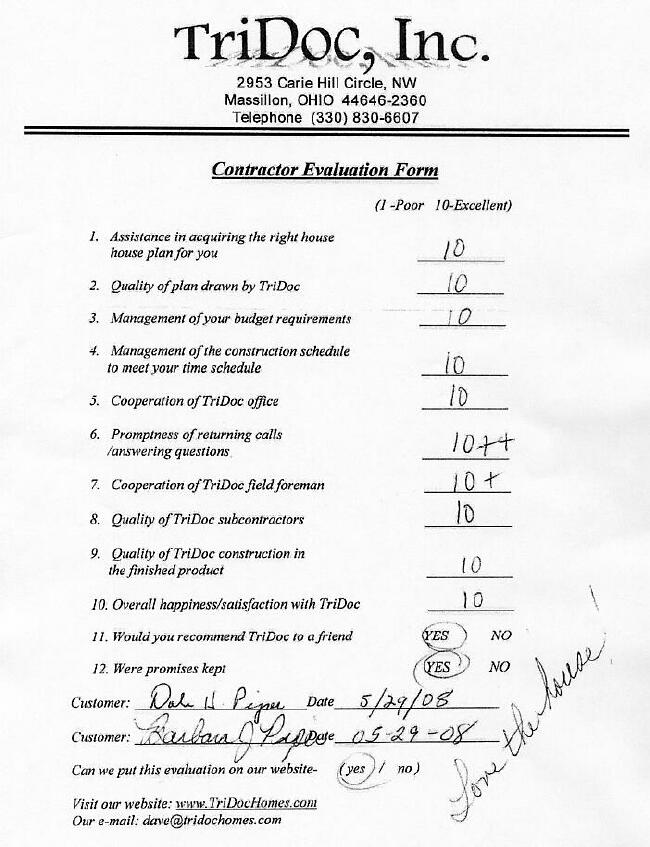 TriDoc, Inc.
2953 Carie Hill Circle, NW
Massillon, OHIO 44646-2360
Telephone (330) 830-6607
Contractor Evaluation Form
(1 -Poor 10-Excellent)
1. Assistance in acquiring the right house
house plan for you 10
2. Quality of plan drawn by TriDoc 10
3. Management of your budget requirements 10
4. Management of the construction schedule
to meet your time schedule 10
5. Cooperation of TriDoc office 10
6. Promptness of returning calls
/answering questions 10++
7. Cooperation of TriDoc field foreman 10+
8. Quality of TriDoc subcontractors 10
9. Quality of TriDoc construction in
the finished product 10
10. Overall happiness/satisfaction with TriDoc 10
11. Would you recommend TriDoc to a friend YES NO
12. Were promises kept YES NO
Customer: Dale H. Piper Date 5/29/08
Customer: Barbara J Piper Date 05-29-08
Can we put this evaluation on our website- (yes / no)
Love the house!
Visit our website: www.TriDocHomes.com
Our e-mail: dave@tridochomes.com